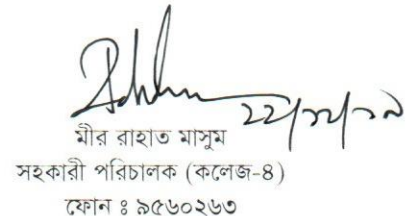 ২২/১২/১৯
মীর রাহাত মাসুম
সহকারী পরিচালক (কলেজ-৪)
ফোন ঃ ৯৫৬০২৬৩